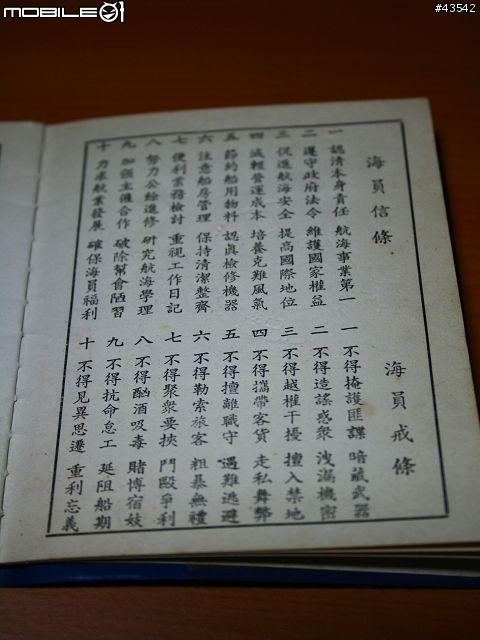 MOBILE01
#43542
海員信條
一 認清本身責任 航海事業第一
二 遵守政府法令 維護國家權益
三 促進航海安全 提高國際地位
四 減輕營運成本 培養克難風氣
五 節約船用物料 認真檢修機器
六 注意船房管理 保持清潔整齊
七 便利業務檢討 重視工作日記
八 努力公餘進修 研究航海學理
九 加強主僱合作 破除幫會陋習
十 力求航業發展 確保海員福利
海員戒條
一 不得掩護匪諜 暗藏武器
二 不得造謠惑衆 洩漏機密
三 不得越權干擾 擅入禁地
四 不得攜帶客貨 走私舞弊
五 不得擅離職守 遇難逃避
六 不得勒索旅客 粗暴無禮
七 不得聚衆要挾 鬥毆爭利
八 不得酗酒吸毒 賭博宿妓
九 不得抗命怠工 延阻船期
十 不得見異思遷 重利忘義